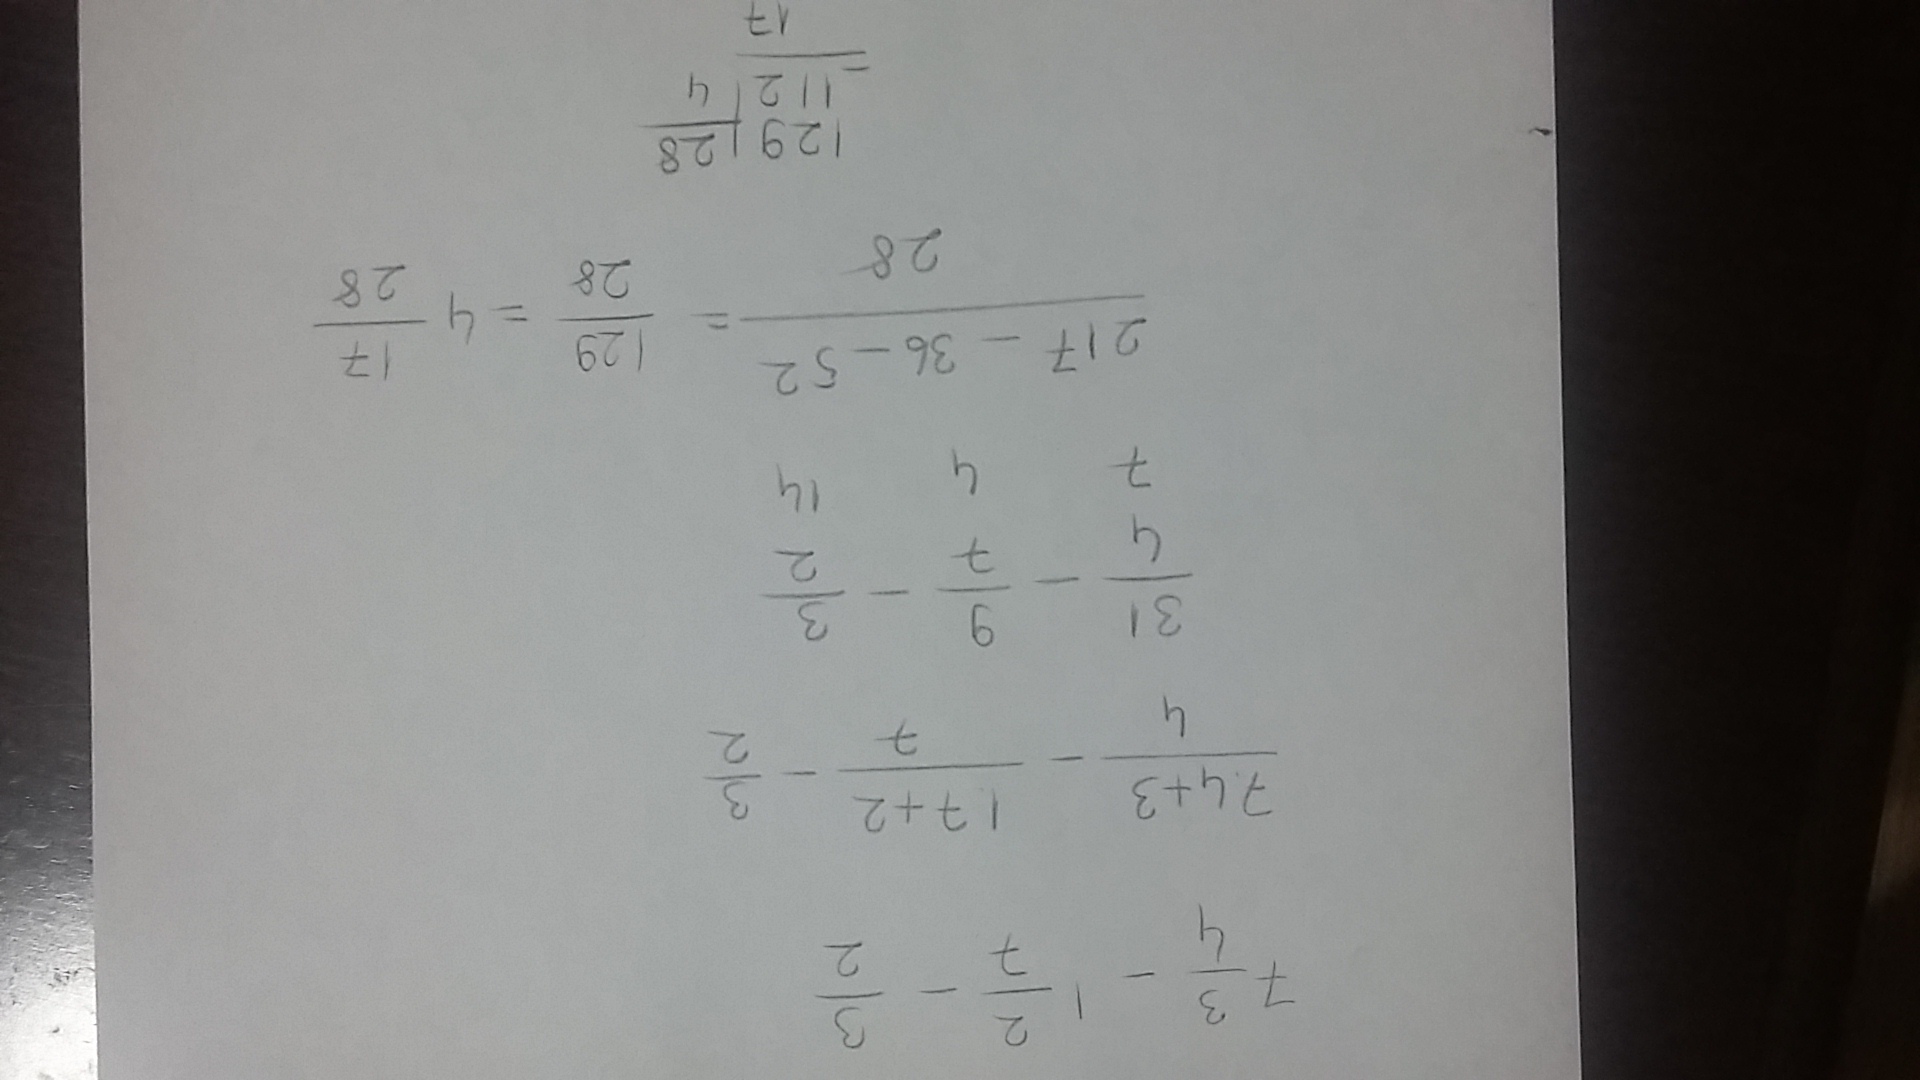 7 3/4 - 1 2/7 - 3/2
7.4+3/4 - 17+2/7 - 3/2
31/4 - 9/7 - 3/2
7 4 14
217 - 36 - 52/28 = 129/28 = 4 17/28
129|28
- 112|4
17